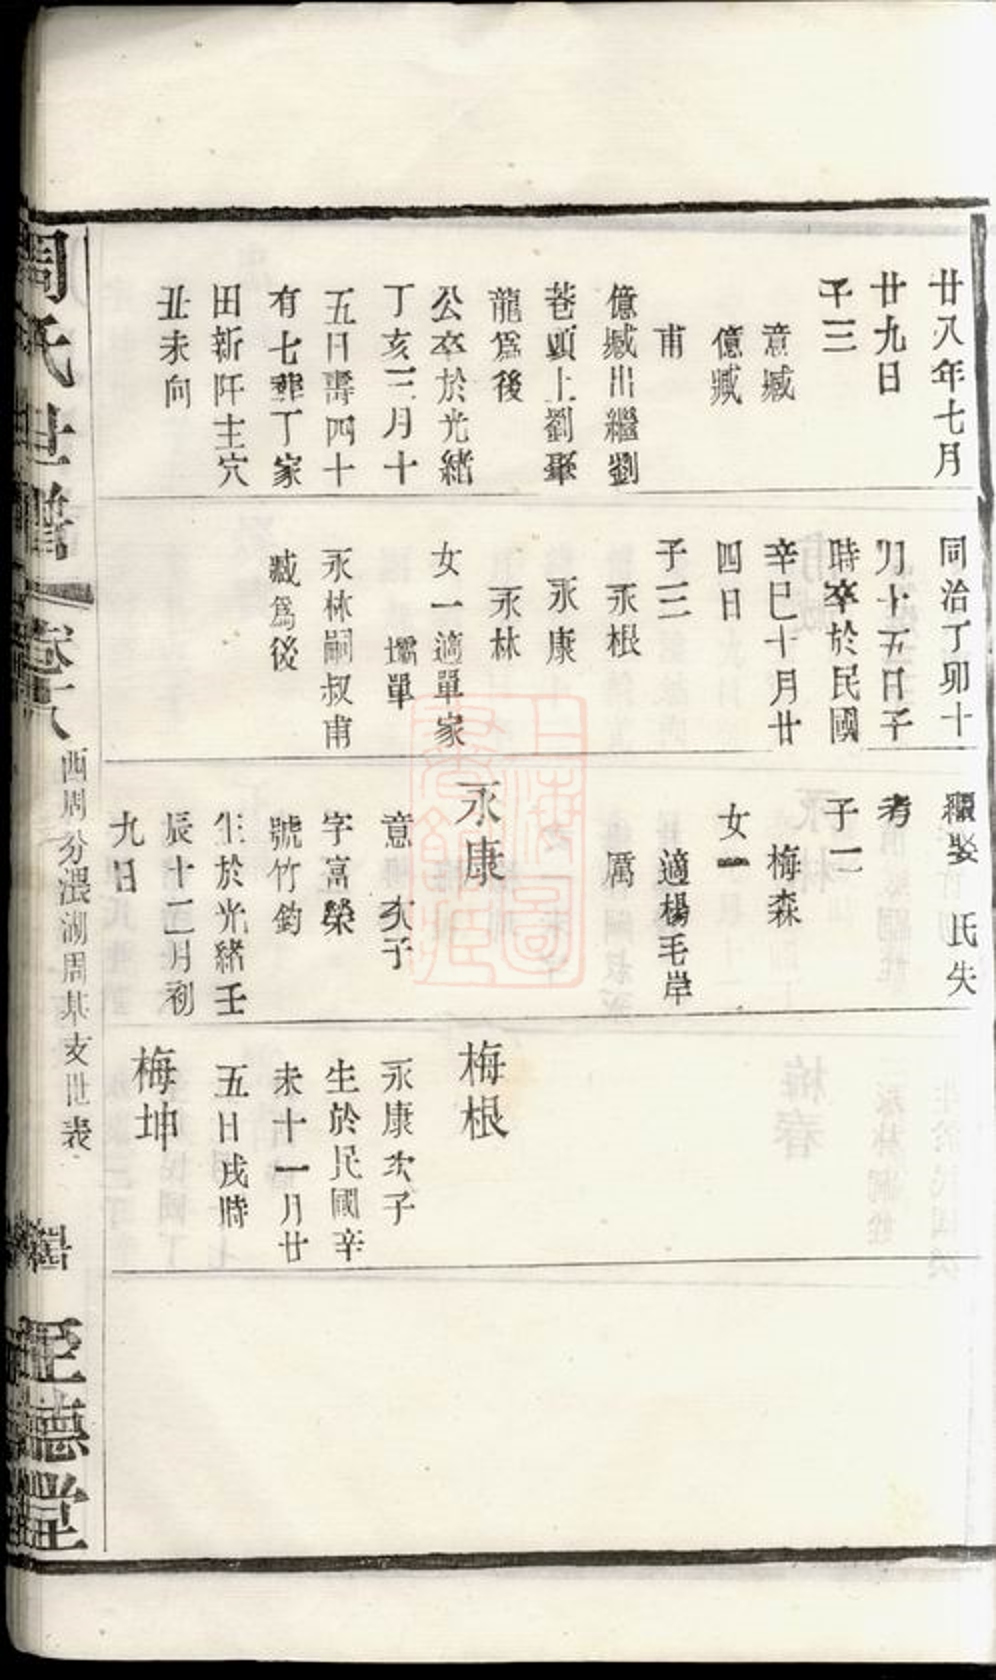 廿八年七月
廿九日
子三
意臧
億臧
甫
億臧出繼劉
巷頭上劉聚
龍爲後
公卒於光緒
丁亥三月十
五日壽四十
有七葬丁家
田新阡主穴
丑未向
同治丁卯十
月十五日子
時卒於民國
辛巳十月廿
四日
子三
永根
永康
永林
女一適單家
壩單
永林嗣叔甫
臧爲後
續娶 氏失
考
子一
梅森
女一
適楊毛岸
厲
永康
意 次子
字富榮
號竹鈞
生於光緒壬
辰十二月初
九日
梅根
永康次子
生於民國辛
未十一月廿
五日戌時
梅坤
周氏世譜
卷十八
西周分漊湖周基支世表
至德堂